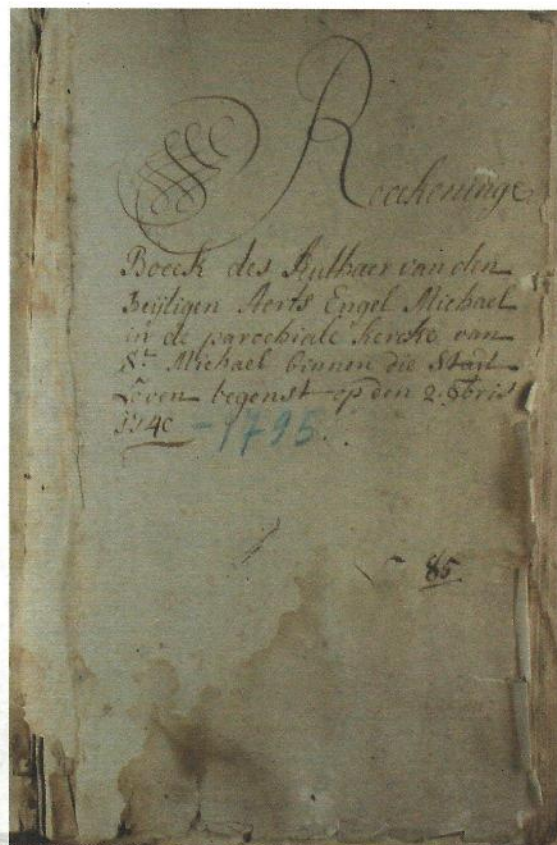 Reeckeninge
Boeck des Authaer van den
Heijligen Aerts Engel Michael
in de parochiale kercke van
St. Michael binnen die Stadt
Loven begonst op den 2. 9bris
1740 - 1795.
85